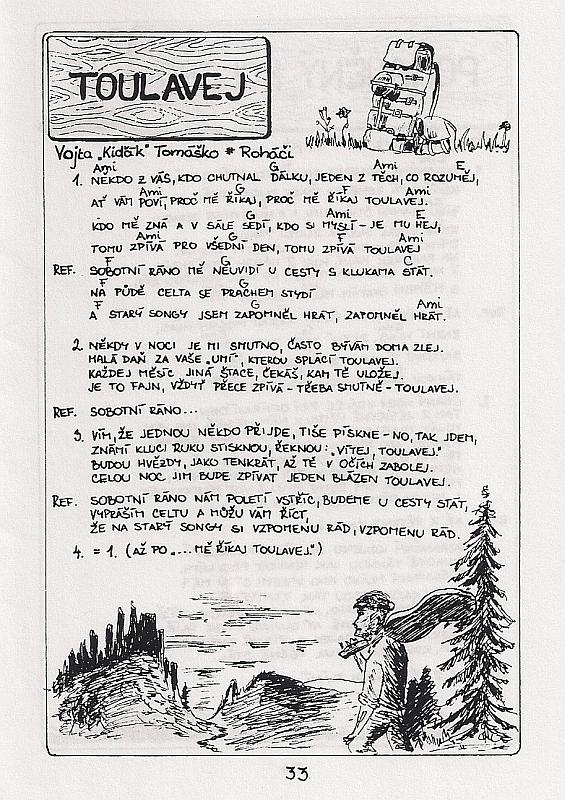 TOULAVEJ
Vojta „Kiďák" Tomáško * Roháči
Ami G Ami E
1. NĚKDO Z VÁS, KDO CHUTNAL DÁLKU, JEDEN Z TĚCH, CO ROZUMĚJ,
Ami G F Ami
AŤ VÁM POVÍ, PROČ MĚ ŘÍKAJ, PROČ MĚ ŘÍKAJ TOULAVEJ.
G Ami E
KDO MĚ ZNÁ A V SÁLE SEDÍ, KDO SI MYSLÍ - JE MU HEJ,
Ami G F Ami
TOMU ZPÍVÁ PRO VŠEDNÍ DEN, TOMU ZPÍVÁ TOULAVEJ
F G C
REF. SOBOTNÍ RÁNO MĚ NEUVIDÍ U CESTY S KLUKAMA STÁT.
F G
NA PŮDĚ CELTA SE PRACHEM STYDÍ
F G Ami
A STARÝ SONGY JSEM ZAPOMNĚL HRÁT, ZAPOMNĚL HRÁT.
2. NĚKDY V NOCI JE MI SMUTNO, ČASTO BÝVÁM DOMA ZLEJ.
MALÁ DAŇ ZA VAŠE „UMÍ", KTEROU SPLÁCÍ TOULAVEJ.
KAŽDEJ MĚSÍC JINÁ ŠTACE, ČEKÁŠ, KAM TĚ ULOŽEJ.
JE TO FAJN, VŽDYŤ PŘECE ZPÍVÁ - TŘEBA SMUTNĚ - TOULAVEJ.
REF. SOBOTNÍ RÁNO...
3. VÍM, ŽE JEDNOU NĚKDO PŘIJDE, TIŠE PÍSKNE - NO, TAK JDEM,
ZNÁMÍ KLUCI RUKU STISKNOU, ŘEKNOU: „VÍTEJ, TOULAVEJ."
BUDOU HVĚZDY, JAKO TENKRÁT, AŽ TĚ V OČÍCH ZABOLEJ.
CELOU NOC JIM BUDE ZPÍVAT JEDEN BLÁZEN TOULAVEJ.
REF. SOBOTNÍ RÁNO NÁM POLETÍ VSTŘÍC, BUDEME U CESTY STÁT,
VYPRÁŠÍM CELTU A MŮŽU VÁM ŘÍCT,
ŽE NA STARÝ SONGY SI VZPOMENU RÁD, VZPOMENU RÁD.
4. = 1. (AŽ PO „... MĚ ŘÍKAJ TOULAVEJ.")
33